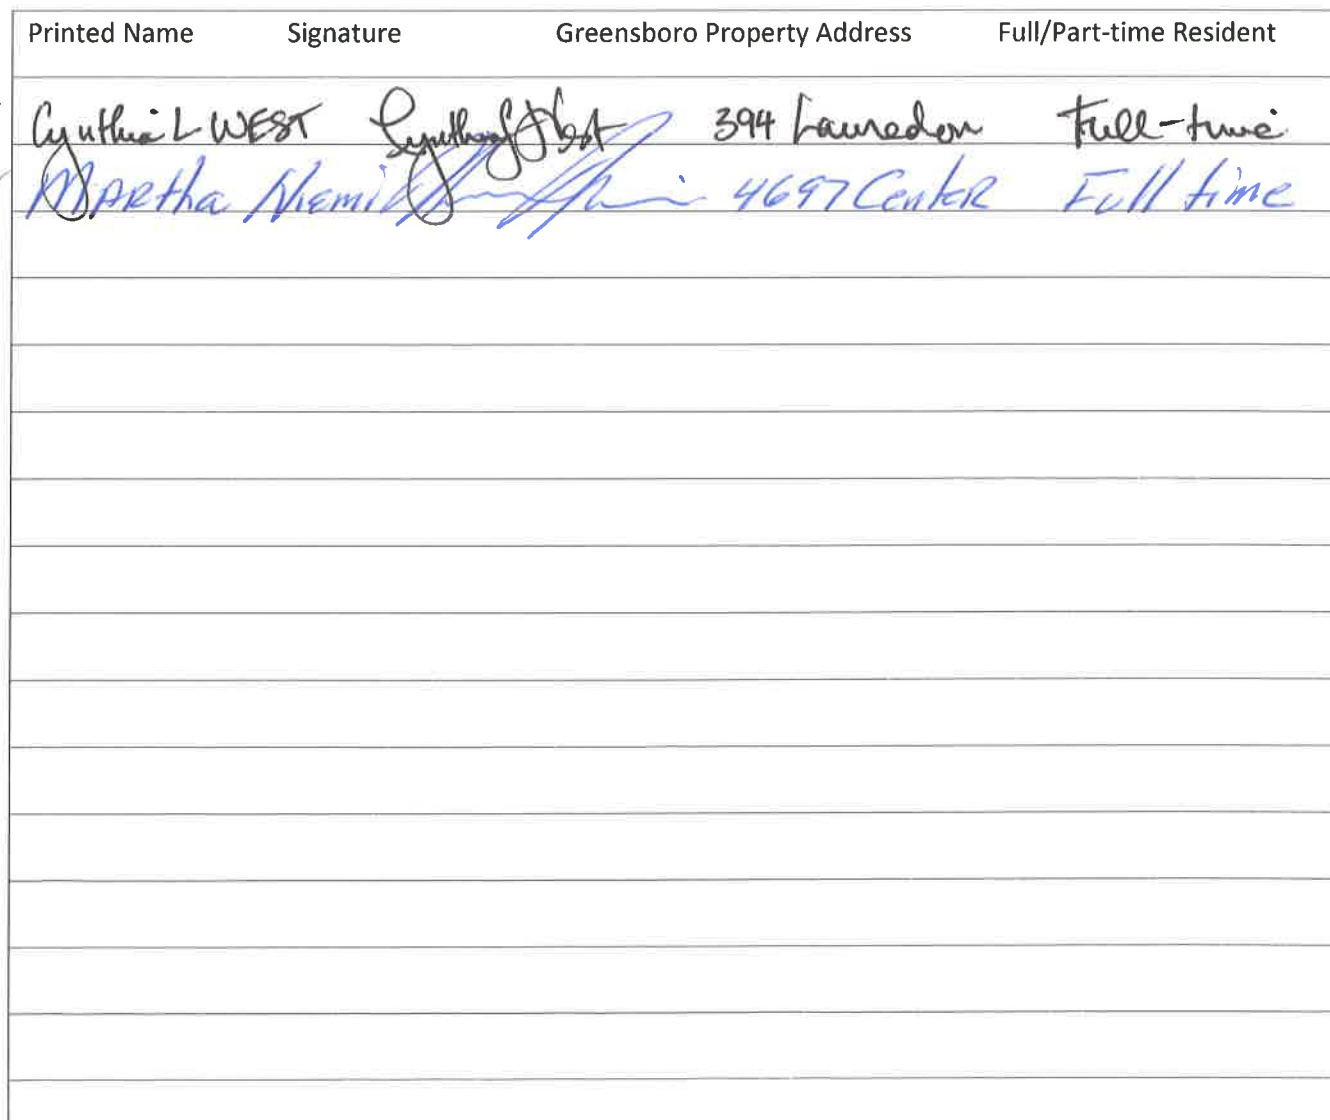 Printed Name Signature Greensboro Property Address Full/Part-time Resident
Cynthia L WEST Cynthia L West 394 Lauredon Full-time
MARtha Niemi 4697 CenteR Full time